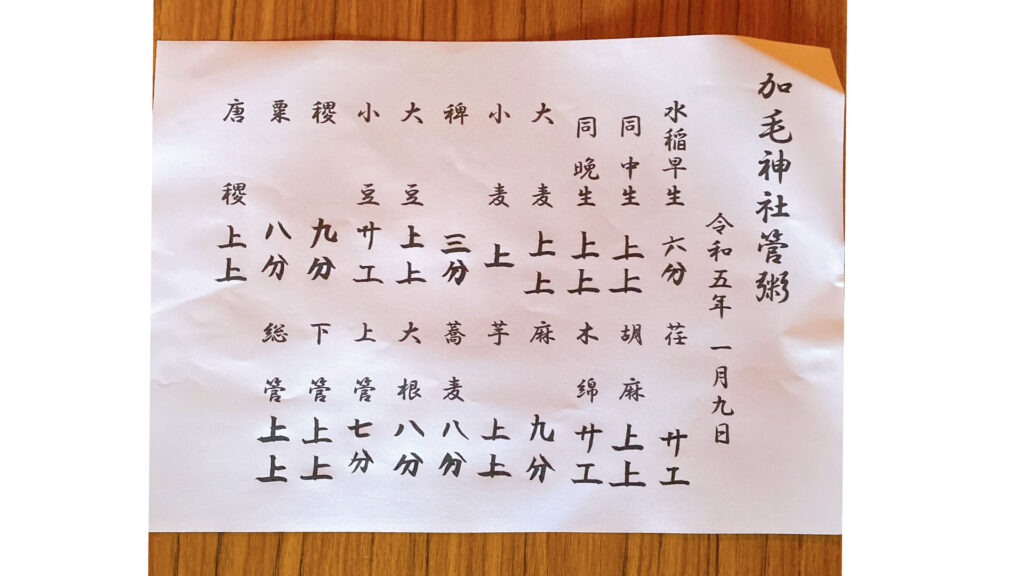 加毛神社管粥
令和五年 一月九日
水稲早生 六分 荏 廿工
同中生 上上 胡麻 上上
同晩生 上上 木綿 廿工
大麦 上上 麻 九分
小麦 上 芋 上上
稗 三分 蕎麦 八分
大豆 上上 大根 八分
小豆 廿工 上管 七分
稷 九分 下管 上上
粟 八分 総管 上上
唐稷 上上